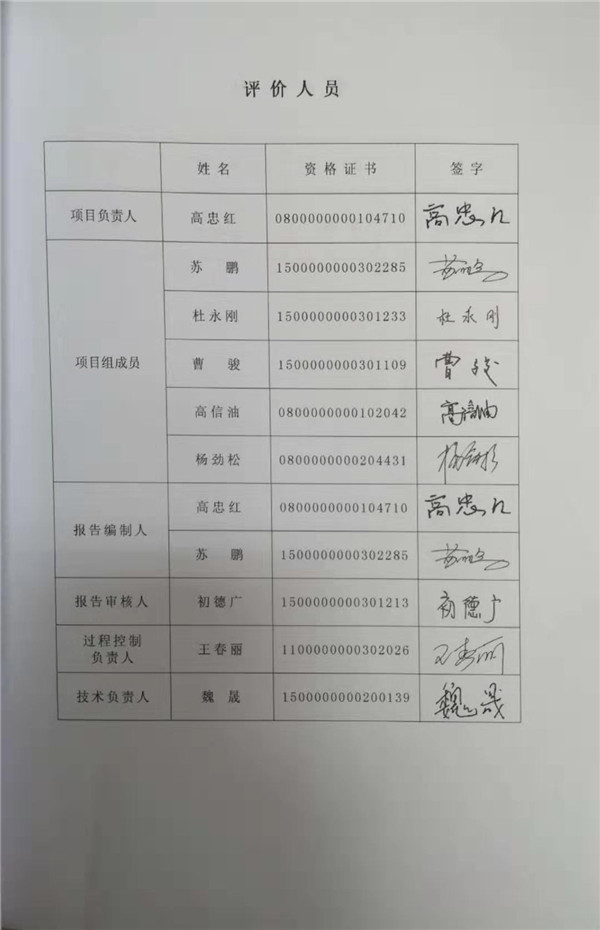 评价人员
姓名 资格证书 签字
项目负责人 高忠红 0800000000104710 高忠红
项目组成员 苏鹏 1500000000302285 苏鹏
杜永刚 1500000000301233 杜永刚
曹骏 1500000000301109 曹骏
高信油 0800000000102042 高信油
杨劲松 0800000000204431 杨劲松
报告编制人 高忠红 0800000000104710 高忠红
苏鹏 1500000000302285 苏鹏
报告审核人 初德广 1500000000301213 初德广
过程控制
负责人 王春丽 1100000000302026 王春丽
技术负责人 魏晟 1500000000200139 魏晟